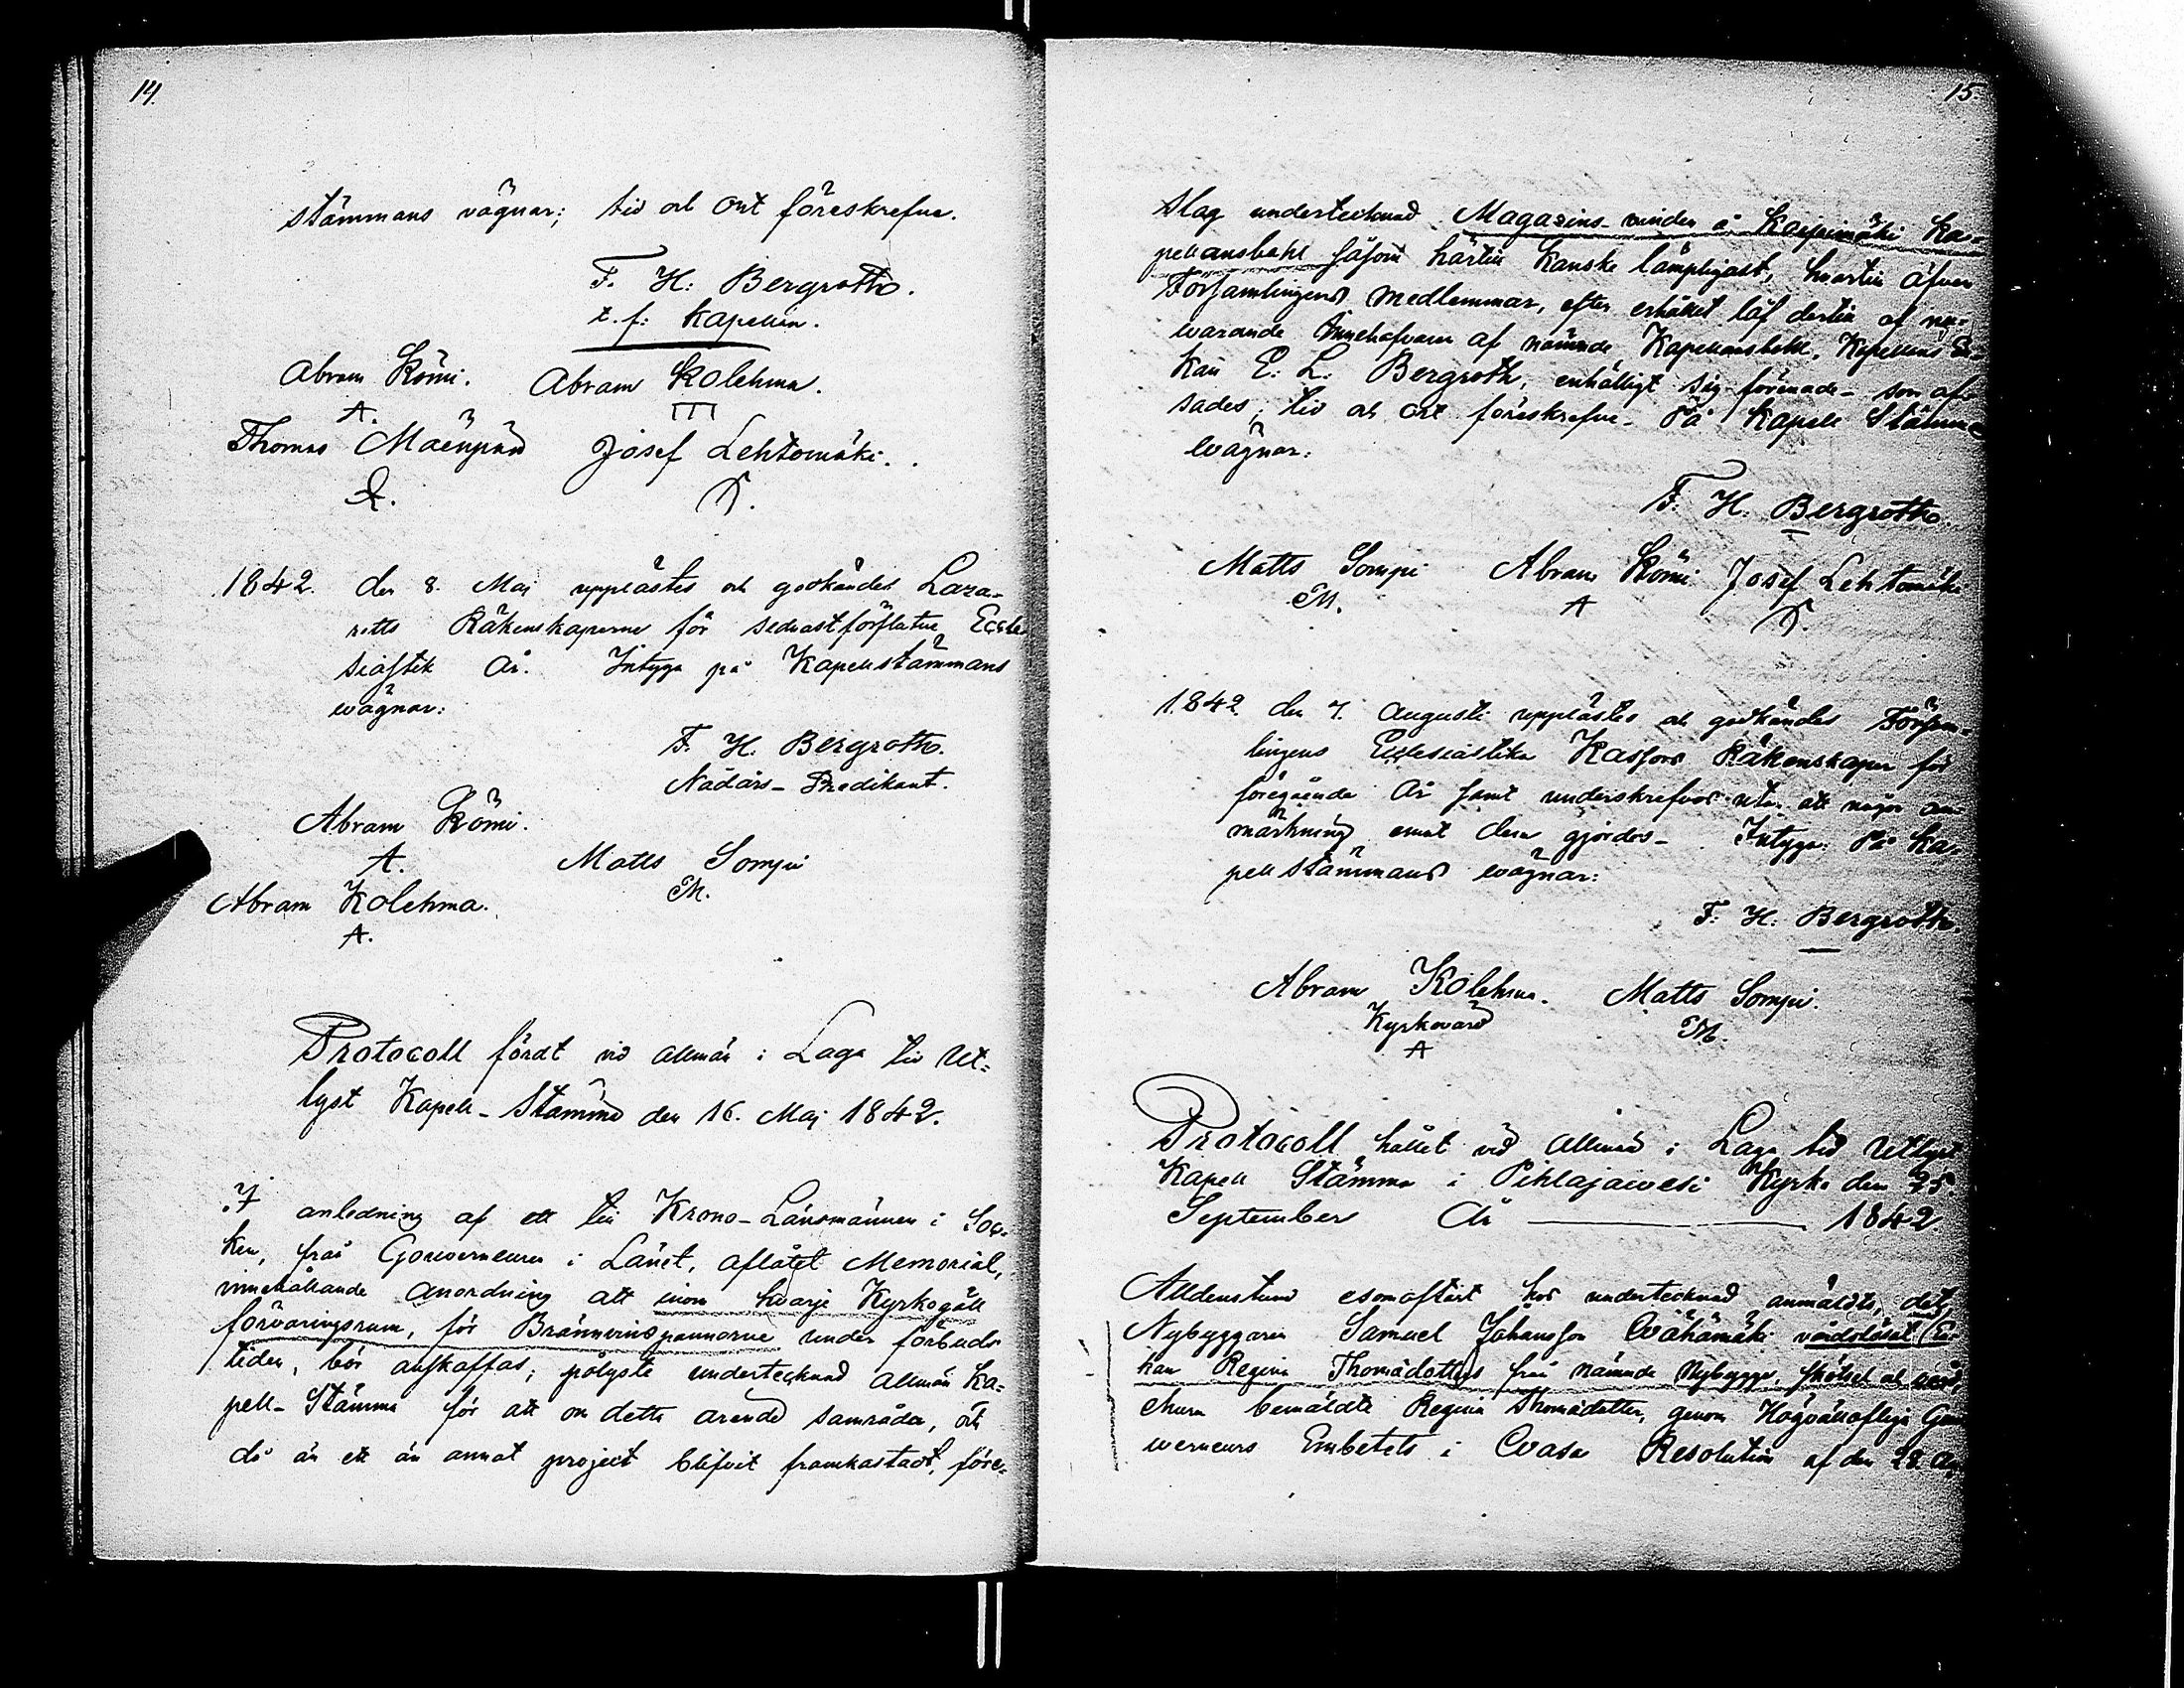 14.
stämmans vägnar; tid och Ort föreskrefne.
F. H. Bergroth.
t. f. Kapellan.
Abram Römi. Abram Kolehma.
A. III
Thomas Mäenpää Josef Lehtomäki.
1842. den 8. Maj upplästes och godkändes Laza-
retts Räkenskaperne för sednast förflutne Eccle-
siastik År. Intyga på Kapellstämmans
wägnar:
F. H. Bergroth.
Nådårs-Predikant.
Abram Römi.
A. Matts Sompi
Abram Kolehma. M.
A.
Protocoll fördt vid allmän i Laga tid Ut-
lyst Kapell-Stämma den 16. Maj 1842.
I anledning af ett till Krono-Länsmannen i Soc-
ken, från Gouverneuren i Länet, aflåtet Memorial,
innehållande Anordning att inom hvarje Kyrkogäll
förvaringsrum, för Bränvinspannorne under förbuds
tiden, bör anskaffas; pålyste undertecknad allmän Ka-
pell-Stämma för att om detta ärende samråda, och
då än ett än annat project blifvit framkastadt, före-
15.
slag undertecknad Magazins-vinden å Karjumäki Ka-
pellansbohl såsom härtill kanske lämpligast, hvartill äfven
Församlingens medlemmar, efter erhållet låf dertill af nu-
warande Innehafvaren af nämnde Kapellansbohl, Kapellans En-
kan E. L. Bergroth, enhälligt sig förenade - som af-
sades, tid och ort föreskrefne. På Kapell Stämmas
wägnar:
F. H. Bergroth.
Matts Sompi Abram Römi Josef Lehtomäki
M. A
1842. den 7. Augusti upplästes och godkändes Försam-
lingens Ecclesiastika Kassors Räkenskaper för
föregående År samt underskrefvos utan att någon an-
märkning emot dem gjordes. Intyga På Ka-
pellstämmans wägnar:
F. H. Bergroth.
Abram Kolehma. Matts Sompi.
Kyrkovärd M.
A
Protocoll hållet vid allmän i Laga tid Utlyst
Kapell Stämma i Pihlajawesi Kyrka den 25.
September År 1842
Alldenstund esomoftast hos undertecknad anmäldts, det
Nybyggaren Samuel Johansson Wähämäki vårdslösat En-
kan Regina Thomädotters från nämnde Nybygge, skötsel och vård,
ehuru bemäldte Regina Thomädotter, genom Högvällofliga Gou-
werneurs Embetets i Wasa Resolution af den 22 Au-